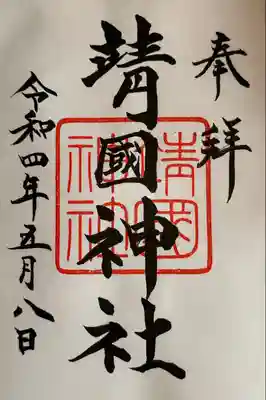 奉拜
靖國神社
靖国
神社
令和四年五月八日